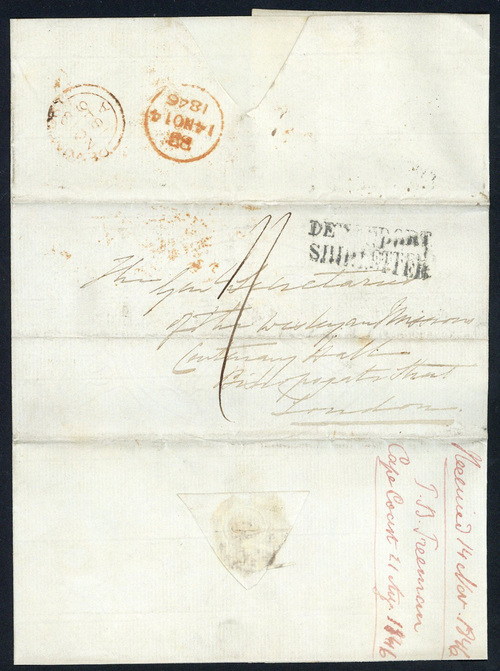 14 NO 14
1846
DEVONPORT
SHIP LETTER
The
Gen Secretaries
of the Wesleyan Missions
Centenary Hall
Bishopsgate Street
London.
Received 14 Nov. 1846
T. B. Freeman
Cape Coast 21 Aug. 1846